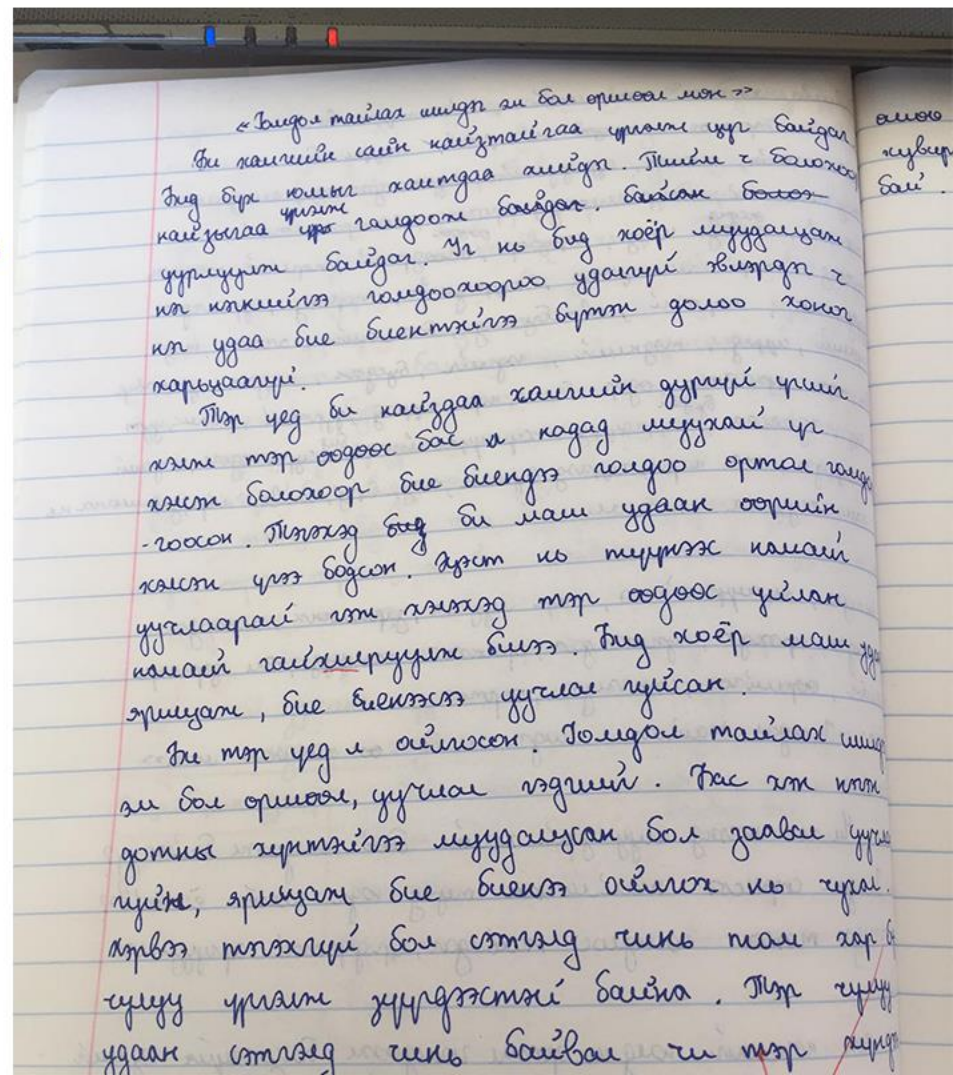 «Гомдол тайлах шилдэг эм бол өршөөл мөн»
Би хамгийн сайн найзтайгаа үргэлж цуг байдаг
Бид бүх юмыг хамтдаа хийдэг. Тийм ч болохоо
найзыгаа үргэлж гомдоож байдаг. байсан болоо
уурлуулж байдаг. Уг нь бид хоёр муудалцаж
нэг нэгнийгээ гомдоохоороо удалгүй эвлэрдэг ч
нэг удаа бие биентэйгээ бүтэн долоо хоног
харьцаагүй.
Тэр үед би найздаа хамгийн дургүй үгийг
хэлж тэр өөдөөс бас л надад муухай үг
хэлсэн болохоор бие биендээ голдоо ортол гомдо
-гоосон. Тэгэхэд бид би маш удаан өөрийн
хэлсэн үгээ бодсон. Эцэст нь түүнээс намайг
уучлаарай гэж хэлэхэд тэр өөдөөс уйлан
намайг гайхшируулж билээ. Бид хоёр маш удаа
ярилцаж, бие биенээсээ уучлал гуйсан.
Би тэр үед л ойлгосон. Гомдол тайлах шилдэ
эм бол өршөөл, уучлал гэдгийг. Бас хэн нэгэн
дотны хүнтэйгээ муудалцсан бол заавал уучла
гуйж, ярилцаж бие биенээ ойлгох нь чухал.
Хэрвээ тэгэхгүй бол сэтгэлд чинь том хар
чулуу үргэлж зүүгдээстэй байна. Тэр чулуу
удаан сэтгэлд чинь байвал чи тэр хүнд
өшөө
хувир
бай.